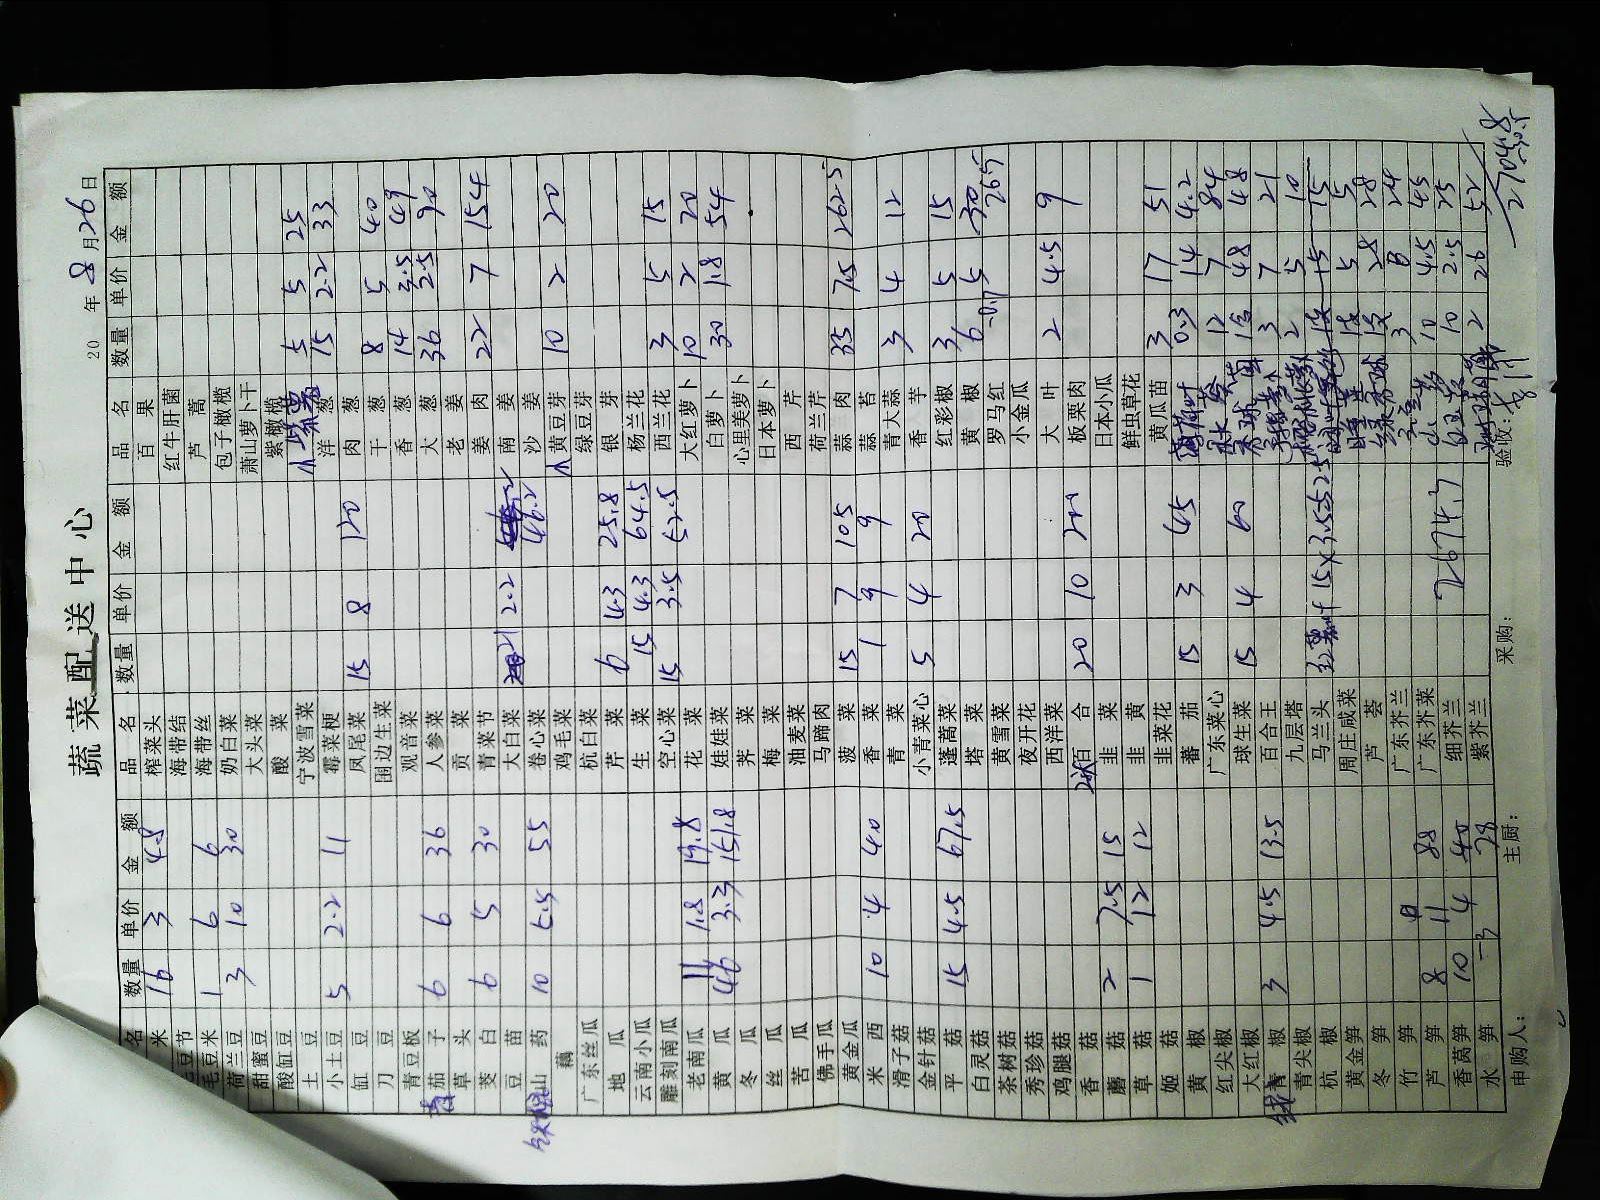 蔬菜配送中心
20 年8月26日
名 数量 单价 金额 品名 数量 单价 金额 品名 数量 单价 金额
米 16 3 4.8 榨菜头 百果
豆节 海带结 红牛肝菌
毛豆米 1 6 6 海带丝 芦蒿
荷兰豆 3 10 30 奶白菜 包子橄榄
甜蜜豆 大头菜 萧山萝卜干
酸缸豆 酸菜 紫橄榄
土豆 宁波雪菜 葱 5 5 25
小土豆 5 2.2 11 霉菜梗 洋葱 15 2.2 33
缸豆 凤尾菜 15 8 120 肉葱
刀豆 围边生菜 干葱 8 5 40
青豆板 观音菜 香葱 14 3.5 49
茄子 6 6 36 人参菜 大葱 36 2.5 90
草头 贡菜 老姜
茭白 6 5 30 青菜节 姜肉 22 7 154
豆苗 大白菜 21 2.2 46.2 南姜
山药 10 5.5 55 卷心菜 沙姜
藕 鸡毛菜 黄豆芽 10 2 20
广东丝瓜 杭白菜 绿豆芽
地瓜 芹菜 6 4.3 25.8 银芽
云南小瓜 生菜 15 4.3 64.5 杨兰花
雕刻南瓜 空心菜 15 3.5 52.5 西兰花 3 5 15
老南瓜 11 1.8 19.8 花菜 大红萝卜 10 2 20
黄瓜 46 3.3 151.8 娃娃菜 白萝卜 30 1.8 54
冬瓜 荠菜 心里美萝卜
丝瓜 梅菜 日本萝卜
苦瓜 油麦菜 西芹
佛手瓜 马蹄肉 荷兰芹
黄金瓜 菠菜 15 7 105 蒜肉 35 7.5 262.5
米西 10 4 40 香菜 1 9 9 蒜苔
滑子菇 青菜 青大蒜 3 4 12
金针菇 小青菜心 5 4 20 香芋
平菇 15 4.5 67.5 蓬蒿菜 红彩椒 3 5 15
白灵菇 塔菜 黄椒 6 5 30
茶树菇 黄雪菜 罗马红 26.5
秀珍菇 夜开花 小金瓜
鸡腿菇 西洋菜 大叶 2 4.5 9
香菇 百合 20 10 200 板栗肉
蘑菇 2 7.5 15 韭菜 日本小瓜
草菇 1 12 12 韭黄 鲜虫草花
姬菇 韭菜花 黄瓜苗 3 17 51
黄椒 蕃茄 15 3 45 薄荷叶 0.3 14 4.2
红尖椒 广东菜心 12 7 84
大红椒 球生菜 15 4 60 48 48
青椒 3 4.5 13.5 百合王 3 7 21
青尖椒 九层塔 2 5 10
杭椒 马兰头 15×3.5=52.5 15 15
黄金笋 周庄咸菜 5 5
冬笋 芦荟 28 28
竹笋 广东芥兰 3 8 24
芦笋 8 11 88 广东芥菜 10 4.5 45
香莴笋 10 4 40 细芥兰 2674.7 10 2.5 25
水笋 78 紫芥兰 2 26 52
申购人: 主厨: 采购: 验收:
2704.8